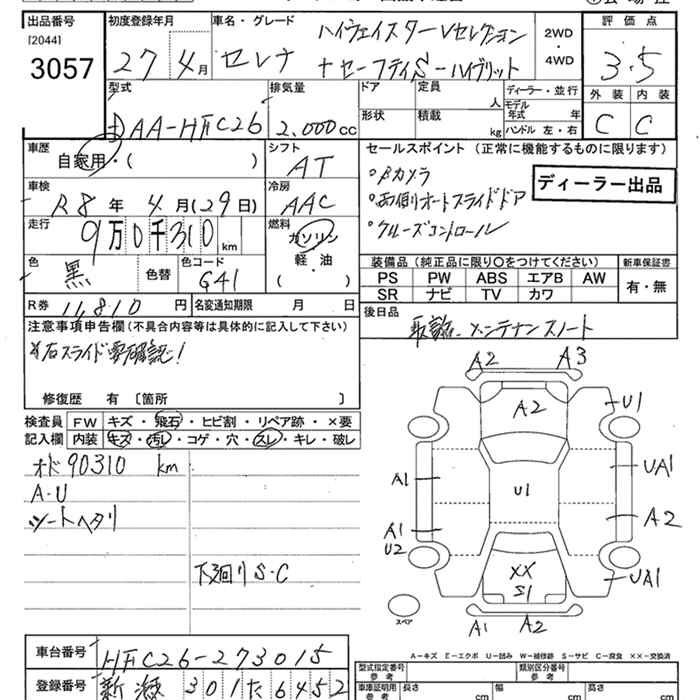 出品番号 初度登録年月 車名・グレード 評価点
[2044]
3057
27年4月 セレナ
ハイウェイスターVセレクション
+セーフティS-ハイブリット
2WD
・
4WD
3.5
型式 排気量 ドア 定員 人 ディーラー・並行
形状 積載 kg モデル年式 年
ハンドル 左・右
外装 内装
C C
DAA-HFC26 2,000cc
車歴 シフト
自家用・( )
AT
セールスポイント (正常に機能するものに限ります)
・Bカメラ
・両側オートスライドドア
・クルーズコントロール
ディーラー出品
車検 冷房
R8年4月(29日) AAC
走行 燃料
9万0千310km
ガソリン
軽・油
( )
色 色替 色コード
黒 G41
装備品 (純正品に限り○をつけてください) 新車保証書
PS PW ABS エアB AW
SR ナビ TV カワ
有・無
R券 11,810円 名変通知期限 月 日
後日品
取説、メンテナンスノート
注意事項申告欄(不具合内容等は具体的に記入して下さい)
右スライド要確認!
修復歴 有 〔箇所 〕
検査員 FW キズ・飛石・ヒビ割・リペア跡・×要
記入欄 内装 キズ・汚れ・コゲ・穴・スレ・キレ・破レ
オド90310 km
A・U
シートヘタリ
下廻りS・C
A2 A3
A2 U1
A1 U1 UA1
A1 A2
U2
XX
S1 UA1
スペア
A1 A2
A-キズ E-エクボ U-凹み W-補修跡 S-サビ C-腐食 XX-交換済
車台番号 HFC26-273015
登録番号 新潟 301 た 6452
型式指定番号 類別区分番号
参考 参考
車庫証明用 長さ 幅 高さ
参考 cm cm cm